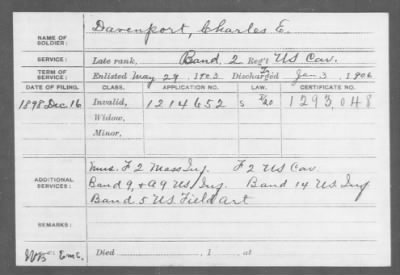 NAME OF SOLDIER: Davenport, Charles E.
SERVICE: Late rank, Band, 2 Reg't US Cav.
TERM OF SERVICE: Enlisted May 29, 1902 Discharged Jan 3, 1906
DATE OF FILING. CLASS. APPLICATION NO. LAW. CERTIFICATE NO.
1898 Dec. 16 Invalid, 1214652 1293,048
Widow,
Minor,
ADDITIONAL SERVICES: Mus. F 2 Mass Inf. F 2 US Cav
Band 9, + A 9 US Inf. Band 14 US Inf
Band 5 US Field Art
REMARKS:
Died , 1 , at